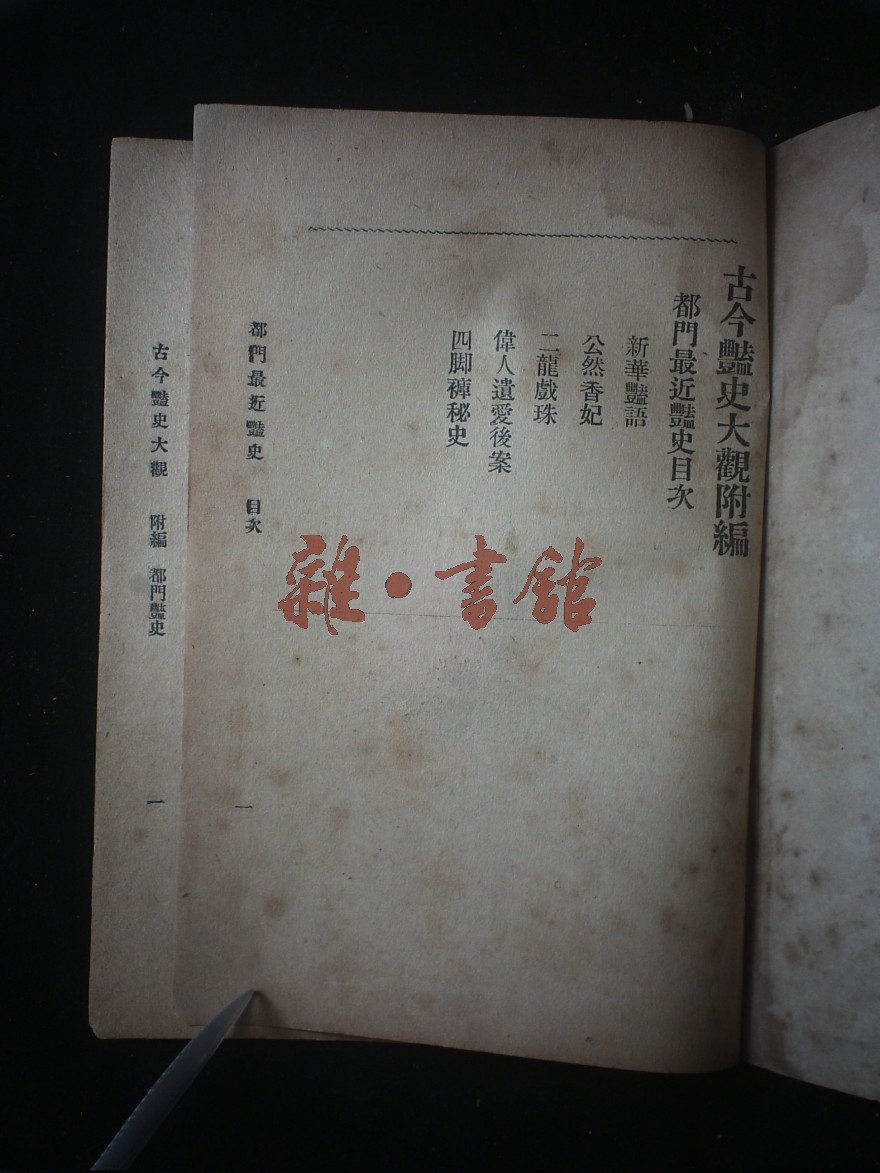 古今豔史大觀附編
都門最近豔史目次
新華豔語
公然香妃
二龍戲珠
偉人遺愛後案
四脚褲秘史
都門最近豔史 目次
一
古今豔史大觀 附編 都門豔史
一
雜·書館